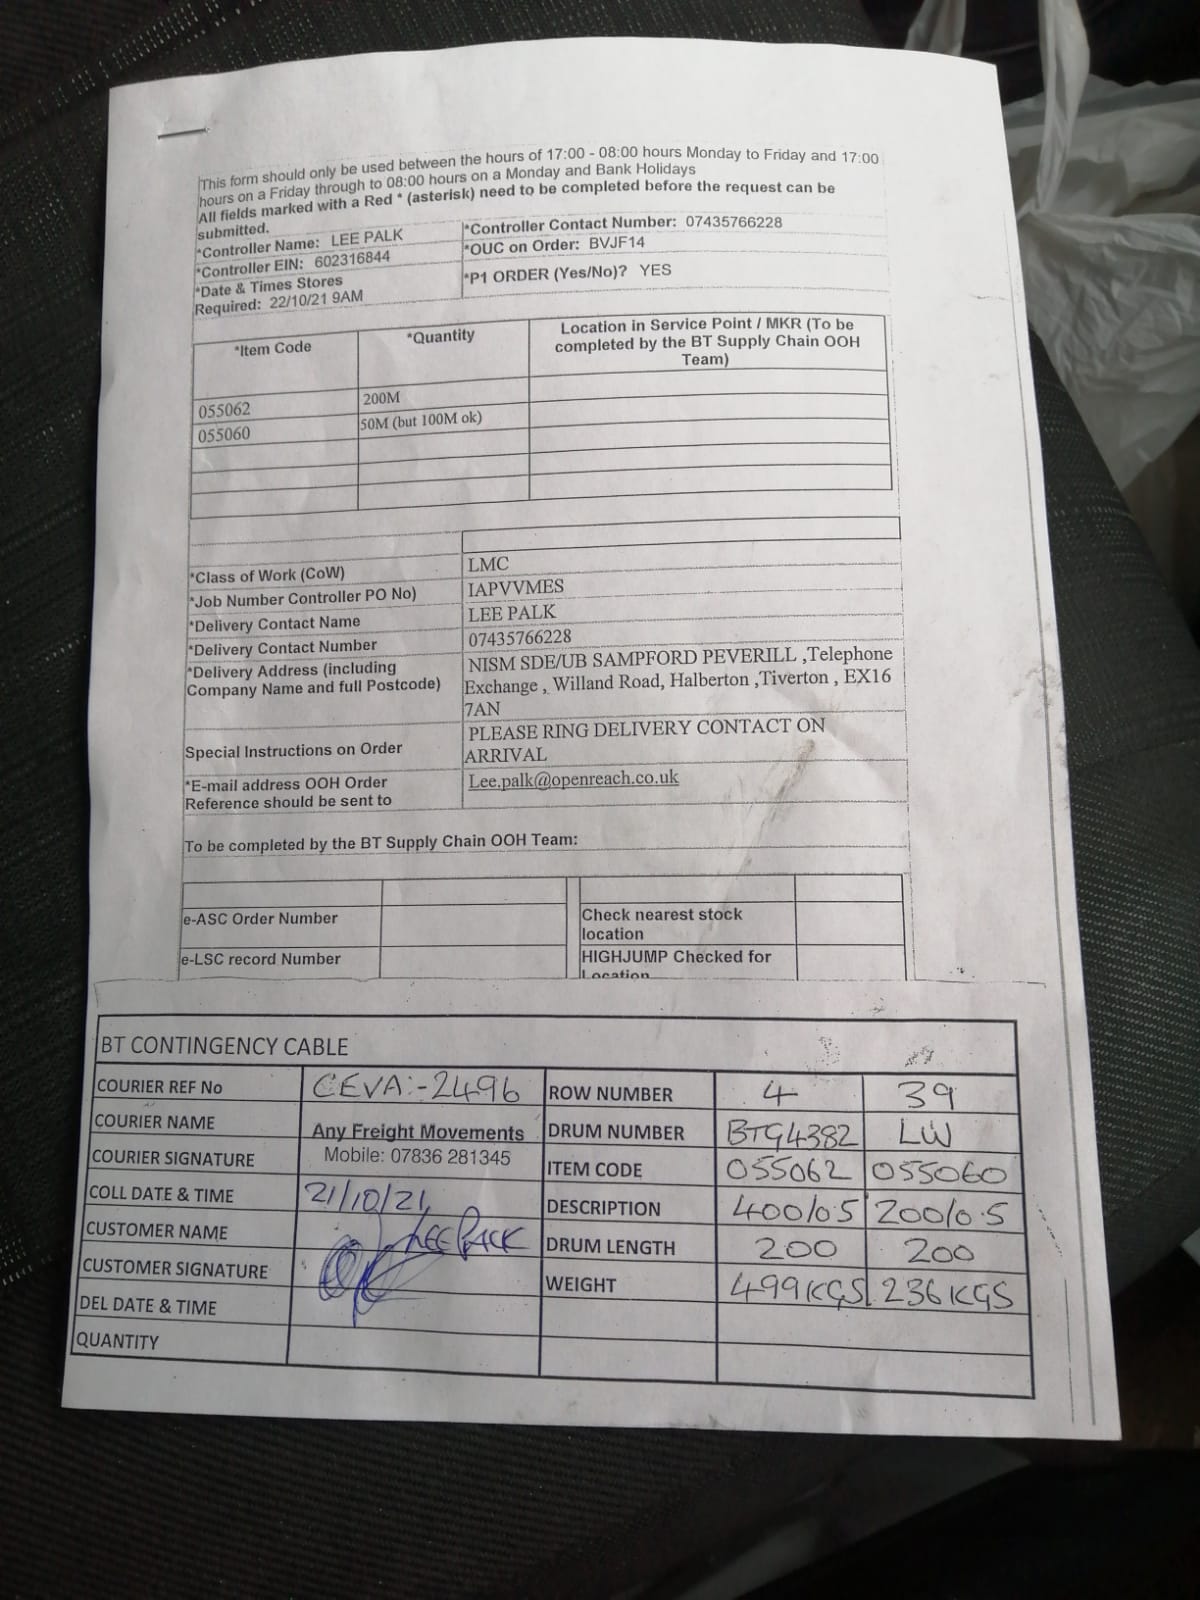 This form should only be used between the hours of 17:00 - 08:00 hours Monday to Friday and 17:00
hours on a Friday through to 08:00 hours on a Monday and Bank Holidays
All fields marked with a Red * (asterisk) need to be completed before the request can be
submitted.
*Controller Name: LEE PALK
*Controller Contact Number: 07435766228
*Controller EIN: 602316844
*OUC on Order: BVJF14
*Date & Times Stores
Required: 22/10/21 9AM
*P1 ORDER (Yes/No)? YES
*Item Code
*Quantity
Location in Service Point / MKR (To be
completed by the BT Supply Chain OOH
Team)
055062 200M
055060 50M (but 100M ok)
*Class of Work (CoW) LMC
*Job Number Controller PO No) IAPVVMES
*Delivery Contact Name LEE PALK
*Delivery Contact Number 07435766228
*Delivery Address (including
Company Name and full Postcode)
NISM SDE/UB SAMPFORD PEVERILL ,Telephone
Exchange , Willand Road, Halberton ,Tiverton , EX16
7AN
Special Instructions on Order
PLEASE RING DELIVERY CONTACT ON
ARRIVAL
*E-mail address OOH Order
Reference should be sent to
Lee.palk@openreach.co.uk
To be completed by the BT Supply Chain OOH Team:
e-ASC Order Number
Check nearest stock
location
e-LSC record Number
HIGHJUMP Checked for
Location
BT CONTINGENCY CABLE
COURIER REF No CEVA:-2496 ROW NUMBER 4 39
COURIER NAME Any Freight Movements DRUM NUMBER BTG4382 LW
COURIER SIGNATURE Mobile: 07836 281345 ITEM CODE 055062 055060
COLL DATE & TIME 21/10/21 DESCRIPTION 400/0.5 200/0.5
CUSTOMER NAME LEE PACK DRUM LENGTH 200 200
CUSTOMER SIGNATURE WEIGHT 499KGS 236KGS
DEL DATE & TIME
QUANTITY